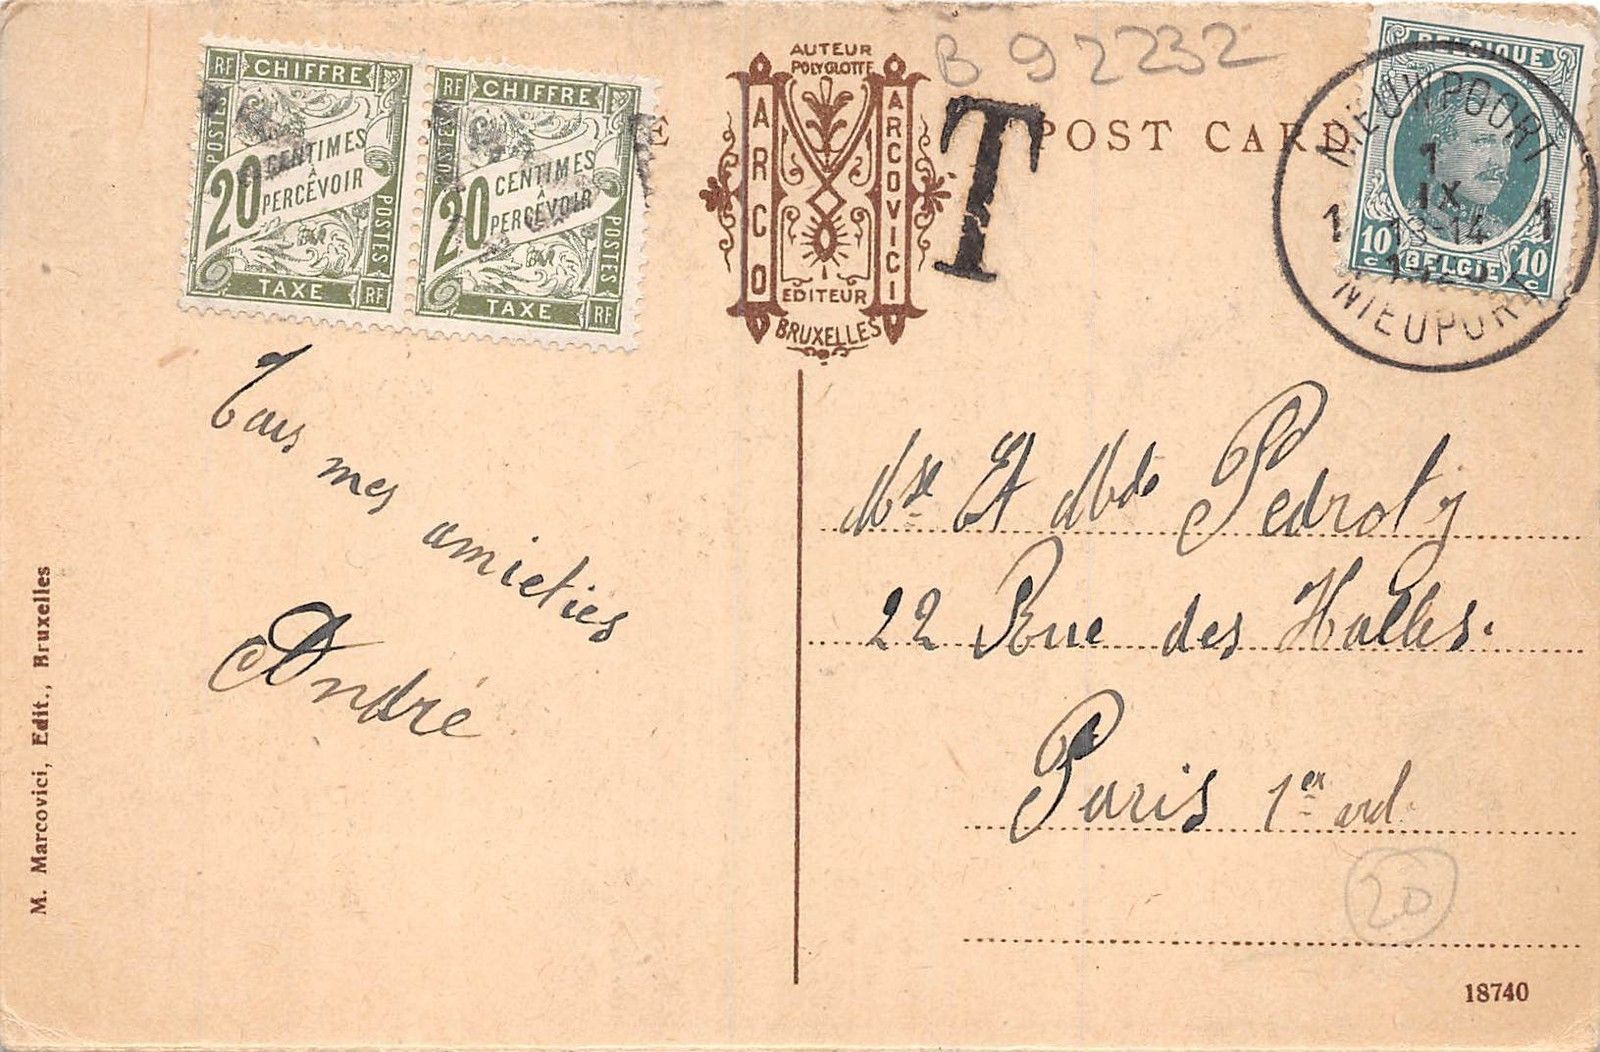 RF CHIFFRE
POSTES
20 CENTIMES
À
PERCEVOIR
POSTES
TAXE RF
RF CHIFFRE
POSTES
20 CENTIMES
À
PERCEVOIR
POSTES
TAXE RF
E
AUTEUR
POLYGLOTTE
ARCO
ARCOVICI
EDITEUR
BRUXELLES
B 92232
T
POST CARD
BELGIQUE
10 c BELGIE 10 c
NIEUWPOORT
1
IX
1 13-14 1
NIEUPORT
Tous mes amieties
André
Mse Et Mde Pedroty
22 Rue des Halles.
Paris 1er ard.
20
M. Marcovici, Edit., Bruxelles
18740